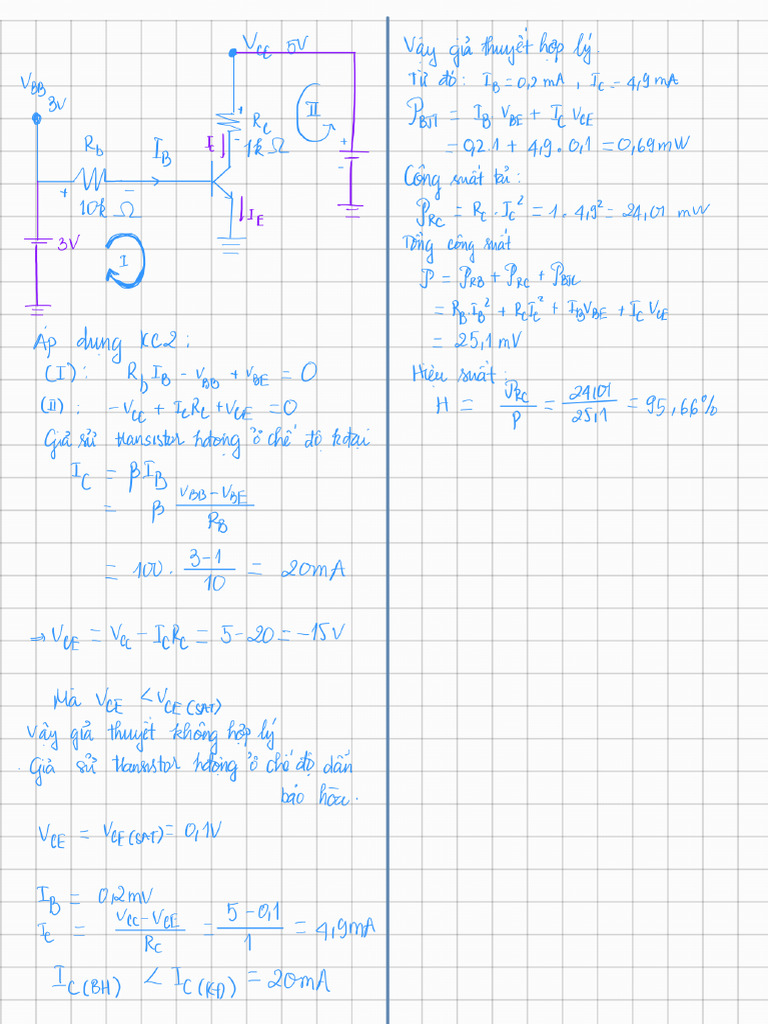 V_CC 5V
V_BB 3V
R_b
I_B
I_C
R_C
1k Ω
II
10k Ω
I_E
3V
I
Áp dụng KC2 :
(I) : R_b I_B - V_BB + V_BE = 0
(II) : -V_CC + I_C R_C + V_CE = 0
Giả sử transistor hđộng ở chế độ kđại
I_C = β I_B
= β (V_BB - V_BE) / R_B
= 100 . (3-1) / 10 = 20mA
⇒ V_CE = V_CC - I_C R_C = 5 - 20 = -15V
Mà V_CE < V_CE(SAT)
Vậy giả thuyết không hợp lý
Giả sử transistor hđộng ở chế độ dẫn
bảo hòa.
V_CE = V_CE(SAT) = 0,1V
I_B = 0,2mV
I_C = (V_CC - V_CE) / R_C = (5 - 0,1) / 1 = 4,9mA
I_C(BH) < I_C(KĐ) = 20mA
Vậy giả thuyết hợp lý.
Từ đó : I_B = 0,2 mA , I_C = 4,9 mA
P_BJT = I_B V_BE + I_C V_CE
= 0,2.1 + 4,9.0,1 = 0,69mW
Công suất tải :
P_RC = R_C . I_C² = 1 . 4,9² = 24,01 mW
Tổng công suất
P = P_RB + P_RC + P_BJT
= R_B I_B² + R_C I_C² + I_B V_BE + I_C V_CE
= 25,1 mV
Hiệu suất :
H = P_RC / P = 24,01 / 25,1 = 95,66%